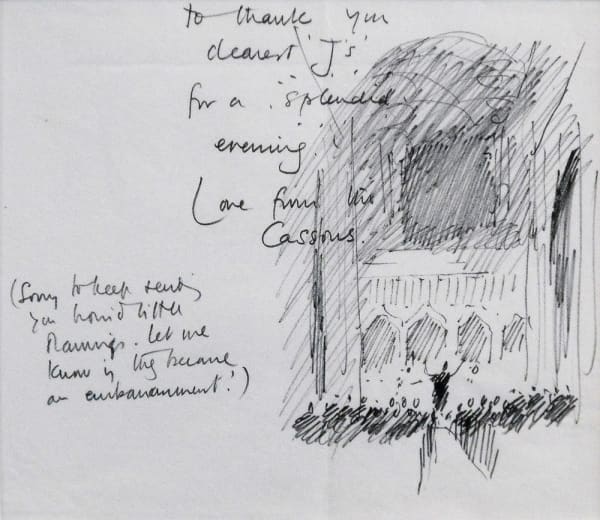 to thank you
dearest 'J's'
for a "splendid
evening"
Love from the
Cassons.
(Sorry to keep sending
you horrid little
drawings. Let me
know if they become
an embarrassment!)